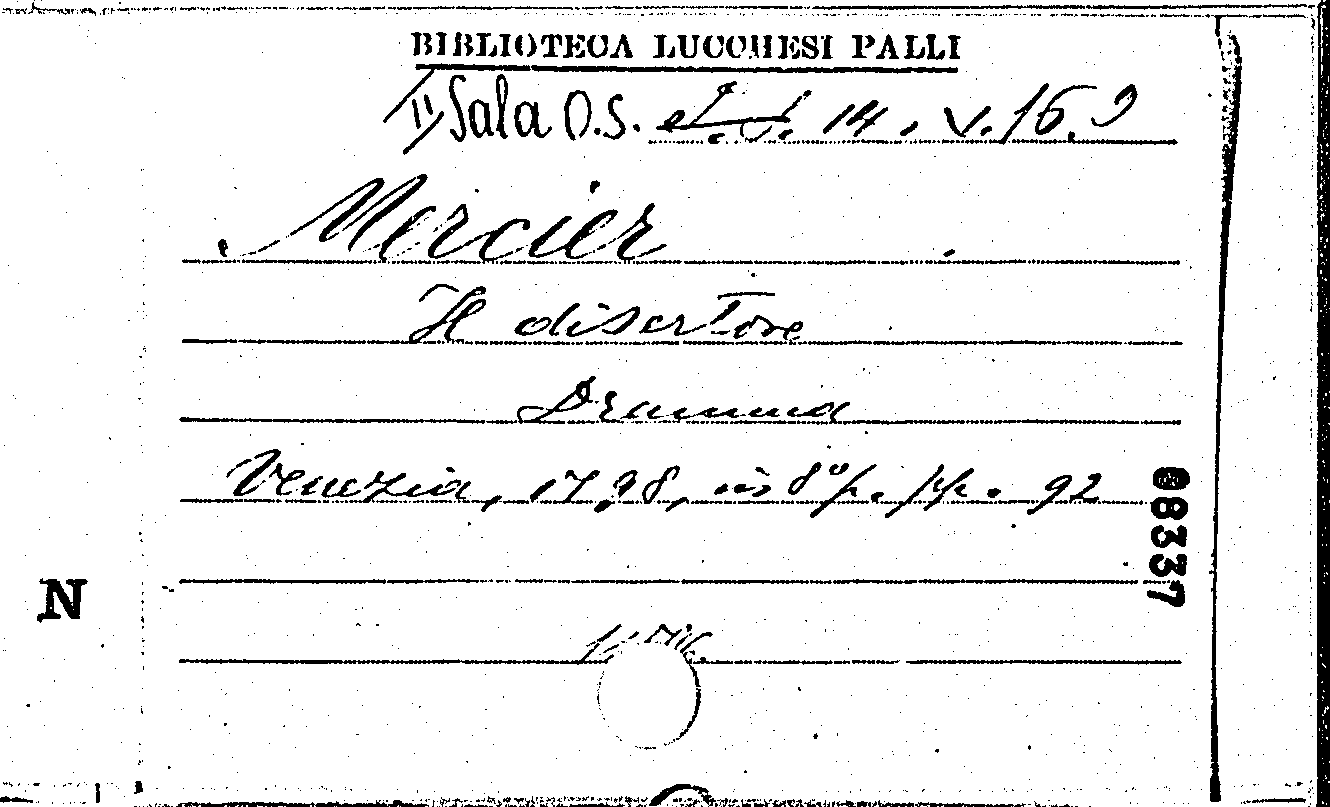 BIBLIOTECA LUCCHESI PALLI
II Sala O.S. 14. V. 16.9
Mercier
Il disertore
Dramma
Venezia, 1798, in 8º p. pp. 92
08337
N